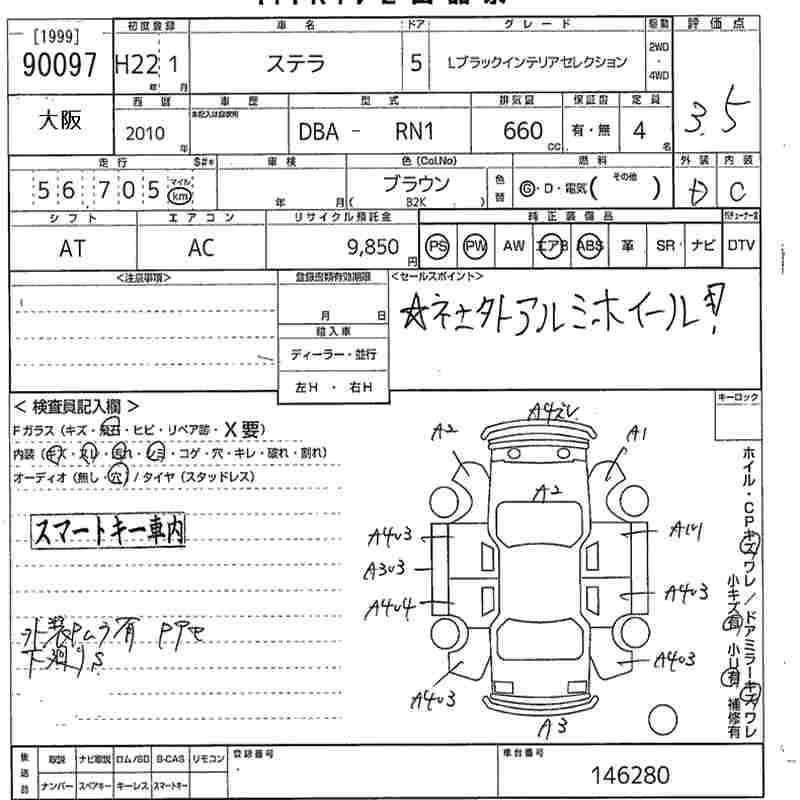 [1999]
90097
初度登録
H22 1
年 月
車名
ステラ
ドア
5
グレード
Lブラックインテリアセレクション
駆動
2WD
・
4WD
評価点
3.5
大阪
西暦
2010
年
車歴
型式
DBA - RN1
排気量
660
CC
保証書
有・無
定員
4
名
走行
S#*
56,705
マイル
km
車検
年 月
色(Col.No)
ブラウン
( B2K )
色替
燃料
G・D・電気( その他 )
外装
内装
D
C
シフト
AT
エアコン
AC
リサイクル預託金
9,850
円
純正装備品
PS PW AW エアB ABS 革 SR ナビ
DTV
<注意事項>
登録書類有効期限
月 日
輸入車
ディーラー・並行
左H・右H
<セールスポイント>
☆ネオクタトアルミホイール!
< 検査員記入欄 >
Fガラス (キズ・飛石・ヒビ・リペア跡・X要)
内装 (キズ・スレ・汚れ・シミ・コゲ・穴・キレ・破れ・割れ)
オーディオ (無し・穴) / タイヤ (スタッドレス)
スマートキー車内
外装Pムラ有 Pアセ
下廻りS
キーロック
A4ズレ
A2
A1
A2
A4U3
A3U3
A4U4
A4U3
A4U3
A4U3
A3
ホイル・CPキズワレ/ドアミラーキズワレ
小キズ有 小U有 補修有
後送品
取説 ナビ取説 ロム/SD B-CAS リモコン
ナンバー スペアキー キーレス スマートキー
登録番号
車台番号
146280